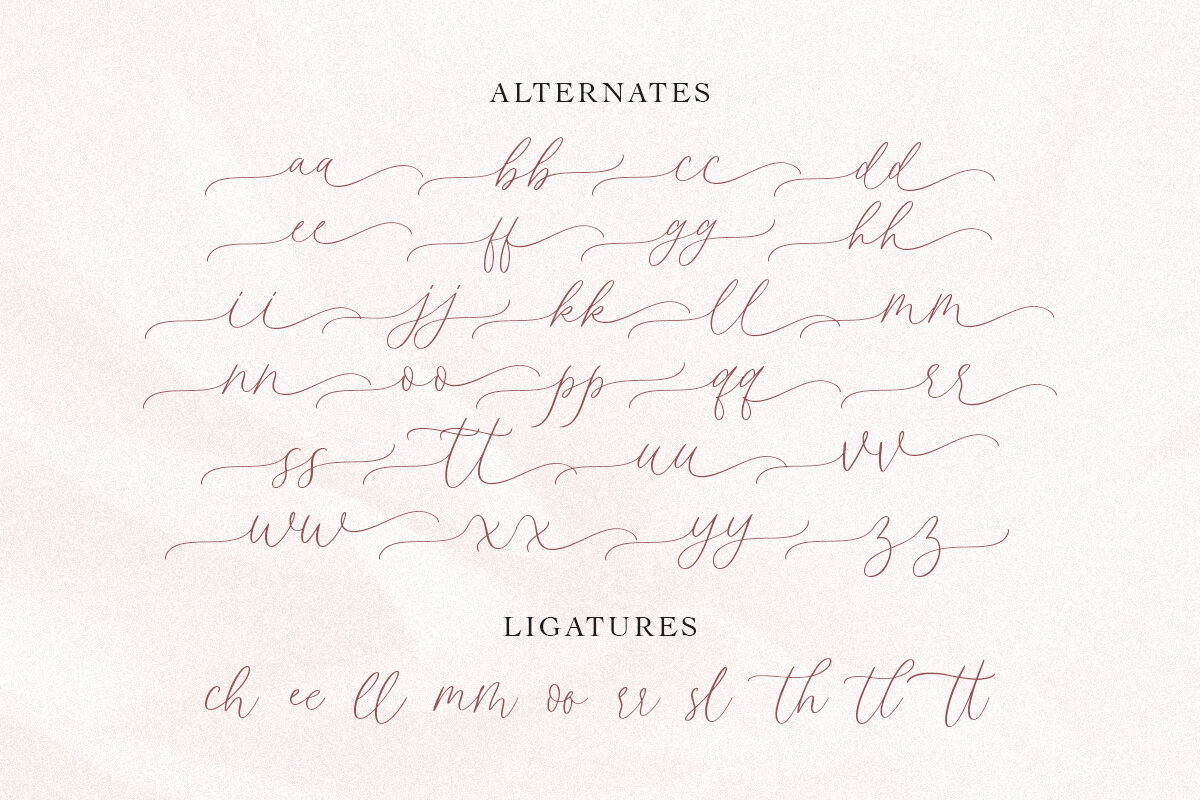 ALTERNATES
aa bb cc dd
ee ff gg hh
ii jj kk ll mm
nn oo pp qq rr
ss tt uu vv
ww xx yy zz
LIGATURES
ch ee ll mm oo rr sl th tl tt